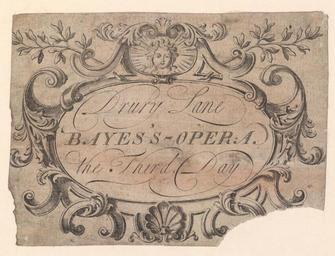 Drury Lane
BAYES'S-OPERA.
the Third Day